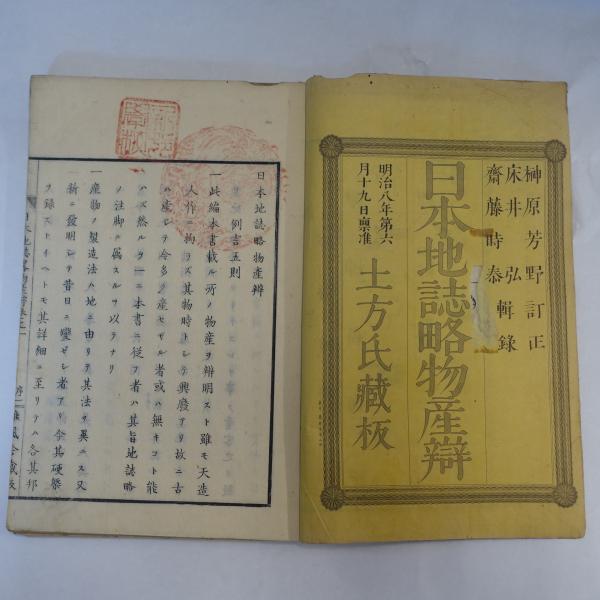 榊原芳野訂正
床井弘
齋藤時泰輯錄
日本地誌略物産辯
明治八年第六
月十九日稟准
土方氏藏板
日本地誌略物産辯
例言五則
一此編本書載ル所ノ物産ヲ辨明スト雖モ天造
人作ノ二物ヲ
其物時トシテ興廢アリ故ニ古
ハ虚シテ今多ク産セザル者或ハ無キコト能
ハズ然ルヲ一ニ本書ニ從フ者ハ其旨地誌略
ノ注脚ニ属スルヲ以テナリ
一産物ノ製造法ハ地ニ由リテ其法ヲ異ニス又
新ニ發明シテ昔日ニ變ゼシ者アリ今其梗槩
ヲ錄ストイヘトモ其詳細ニ至リテハ各其邦